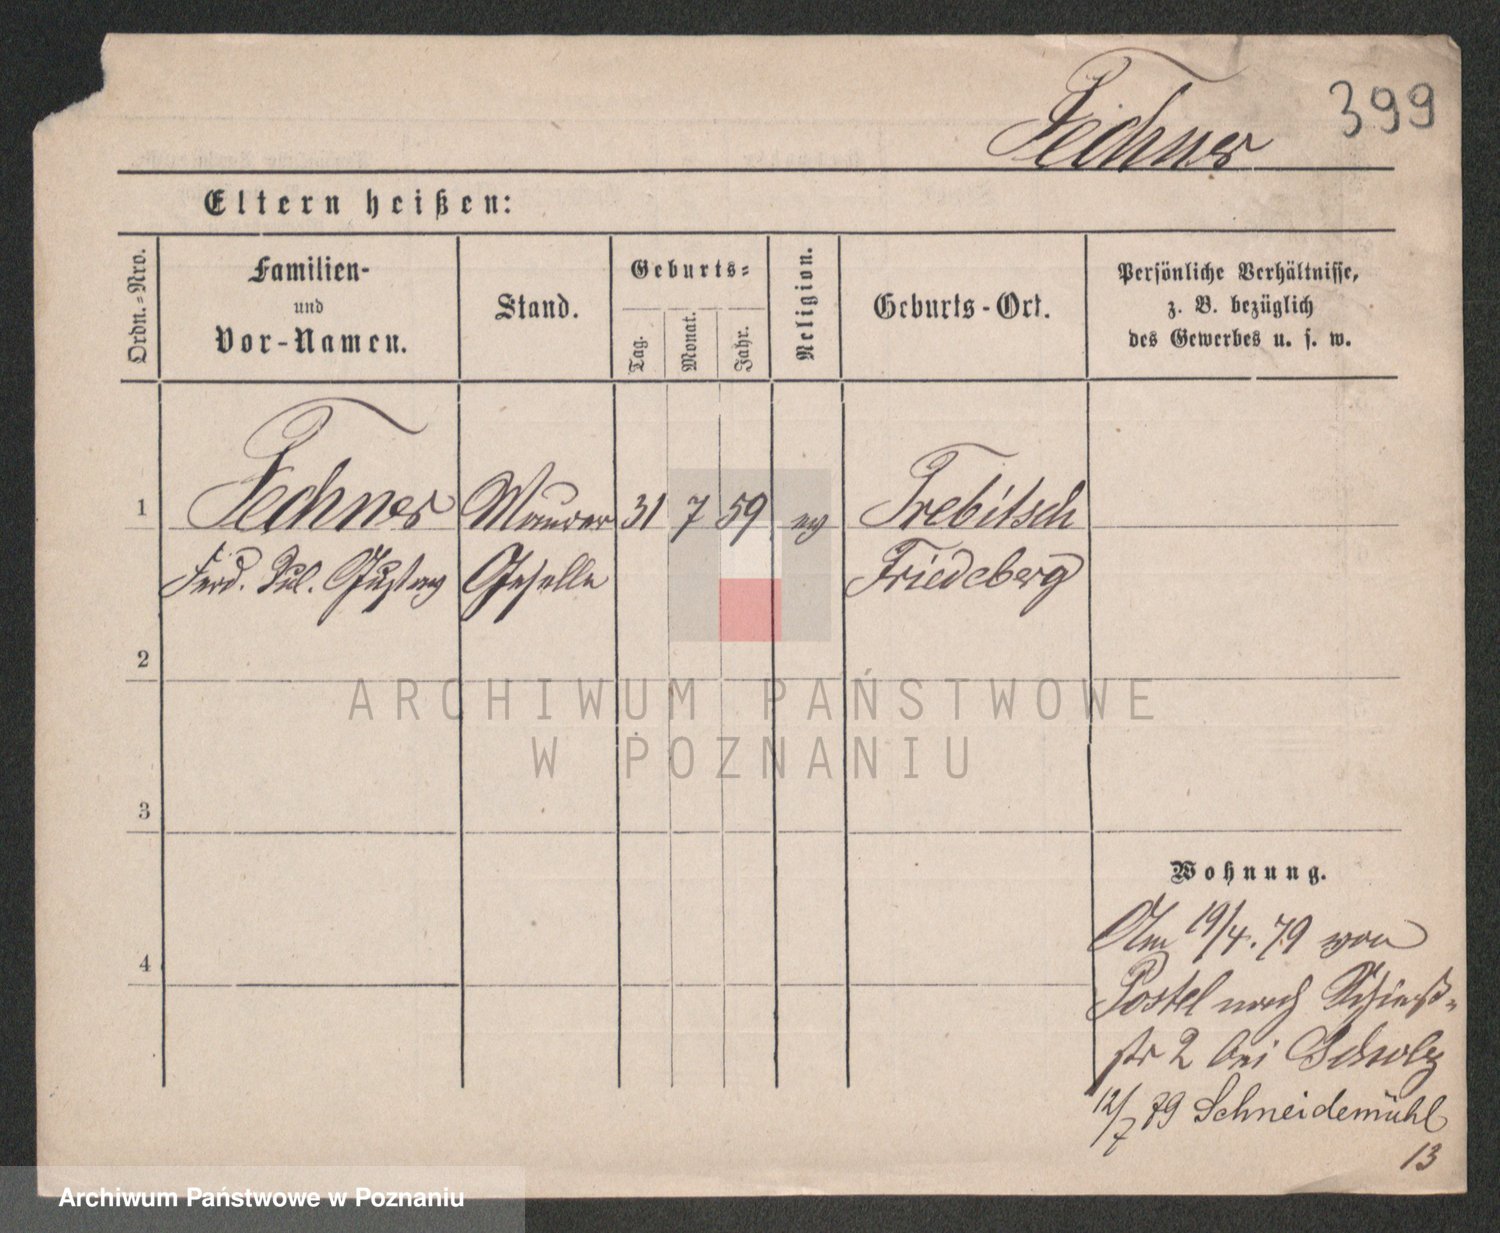 399
Fechner
Eltern heißen:
Ordn.-Nro.
Familien-
und
Vor-Namen.
Stand.
Geburts-
Tag.
Monat.
Jahr.
Religion.
Geburts-Ort.
Persönliche Verhältnisse,
z. B. bezüglich
des Gewerbes u. s. w.
1 Fechner Maurer 31 7 59 ev Trebitsch
Ferd. Jul. Gustav Geselle Friedeberg
2
3
4
Wohnung.
Am 19/4. 79 von
Postel nach Schieß-
str 2 bei Scholz
12/7 79 Schneidemühl
13
ARCHIWUM PAŃSTWOWE
W POZNANIU
Archiwum Państwowe w Poznaniu